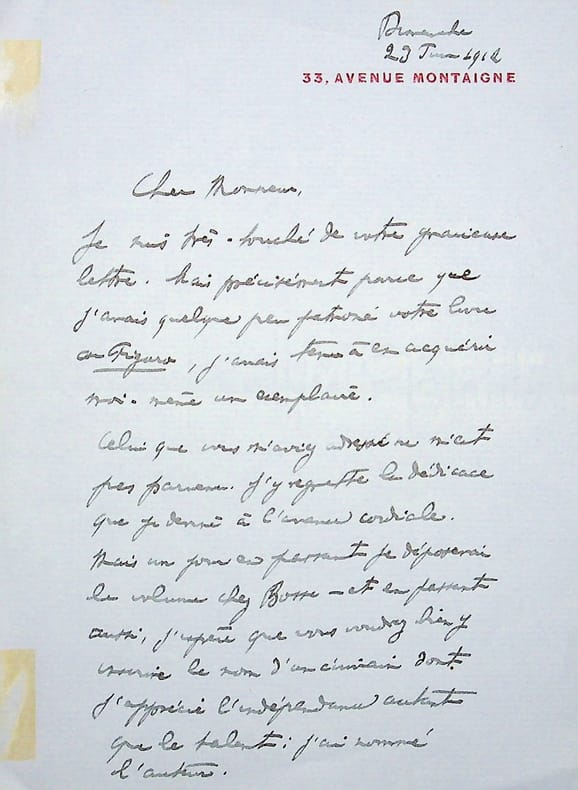 Dimanche
23 Juin 1912
33, AVENUE MONTAIGNE
Cher Monsieur,
Je suis très-touché de votre gracieuse
lettre. Mais précisément parce que
j'avais quelque peu patronné votre livre
au Figaro, j'avais tenu à en acquérir
moi-même un exemplaire.
Celui que vous m'aviez adressé ne m'est
pas parvenu. J'y regrette la dédicace
que je devine à l'avance cordiale.
Mais un jour en passant je déposerai
le volume chez Bosse - et en passant
aussi, j'espère que vous voudrez bien y
inscrire le nom d'un écrivain dont
j'apprécie l'indépendance autant
que le talent : j'ai nommé
l'auteur.